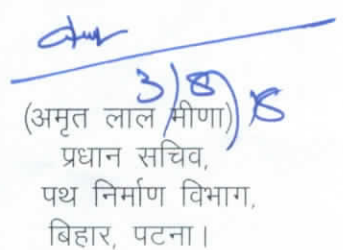 3/8/18
(अमृत लाल मीणा)
प्रधान सचिव,
पथ निर्माण विभाग,
बिहार, पटना।